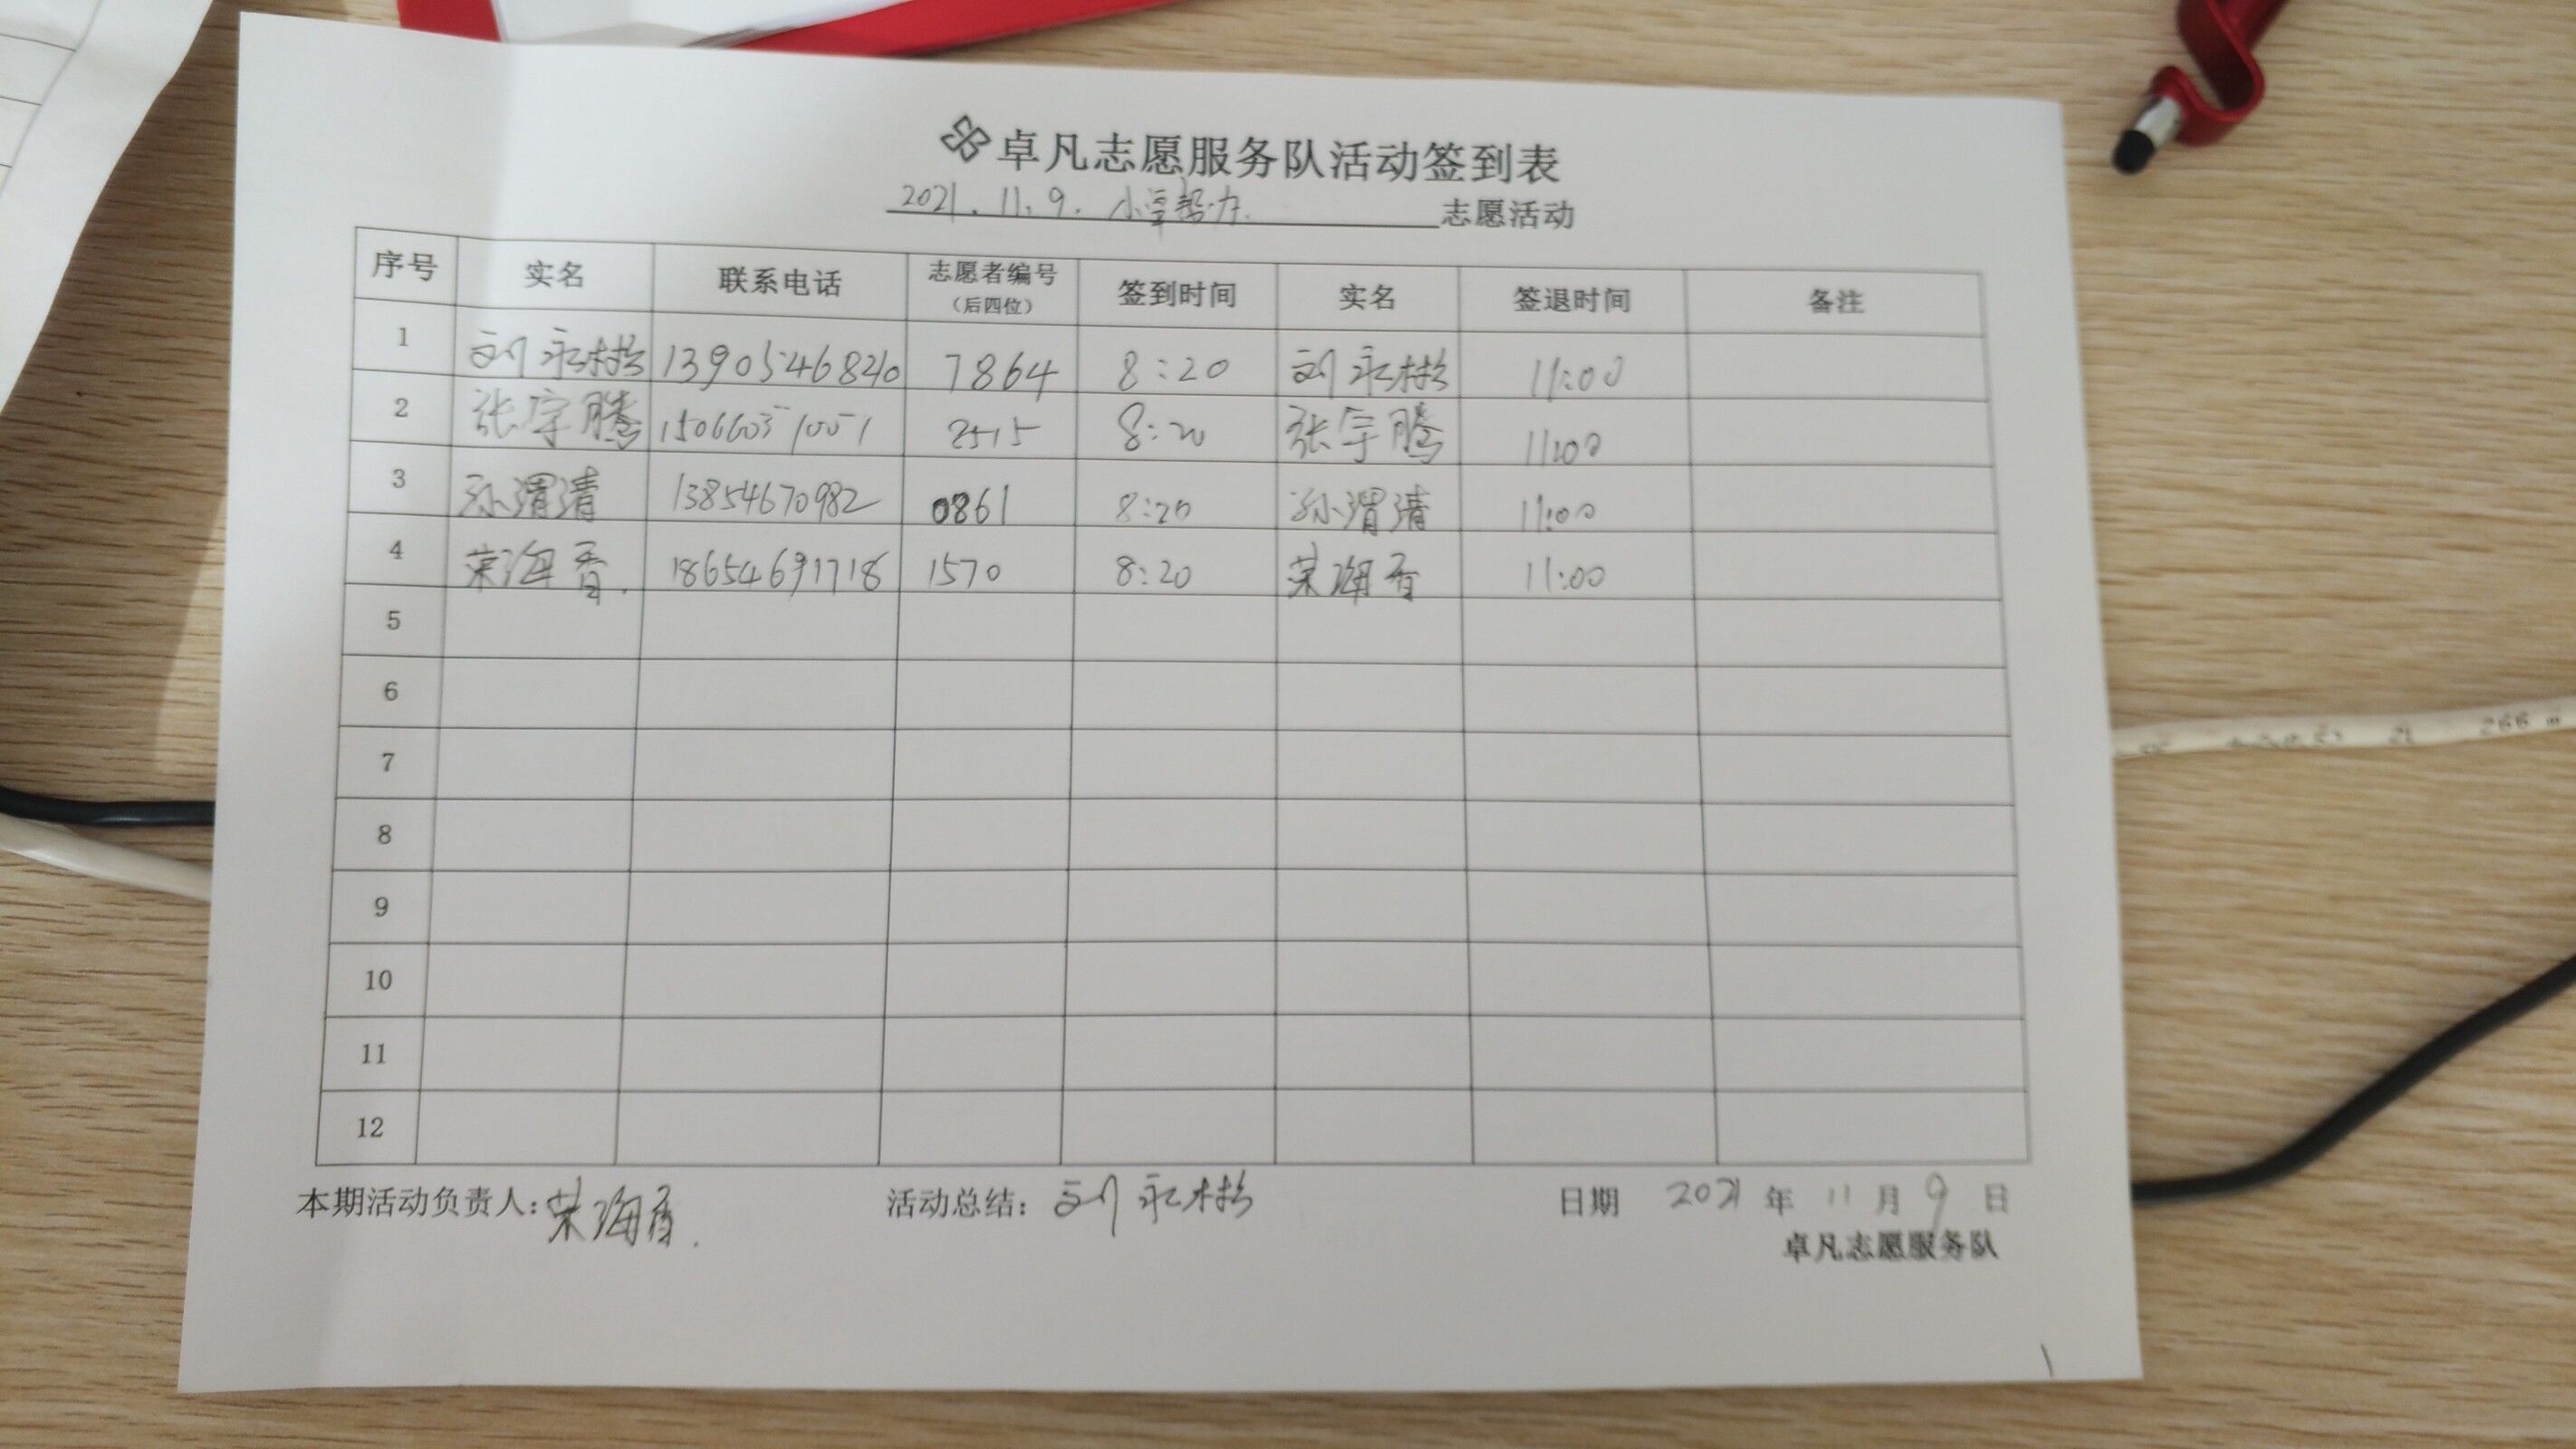 卓凡志愿服务队活动签到表
2021.11.9. 志愿活动
序号 实名 联系电话 志愿者编号 (后四位) 签到时间 实名 签退时间 备注
1 刘永林 7864 8:20 刘永林 11:00
2 张宇腾 2515 8:20 张宇腾 11:00
3 孙渭清 13854670982 0861 8:20 孙渭清 11:00
4 荣海香. 18654691718 1570 8:20 荣海香 11:00
5
6
7
8
9
10
11
12
本期活动负责人: 荣海香. 活动总结: 刘永林 日期 2021 年 11 月 9 日
卓凡志愿服务队